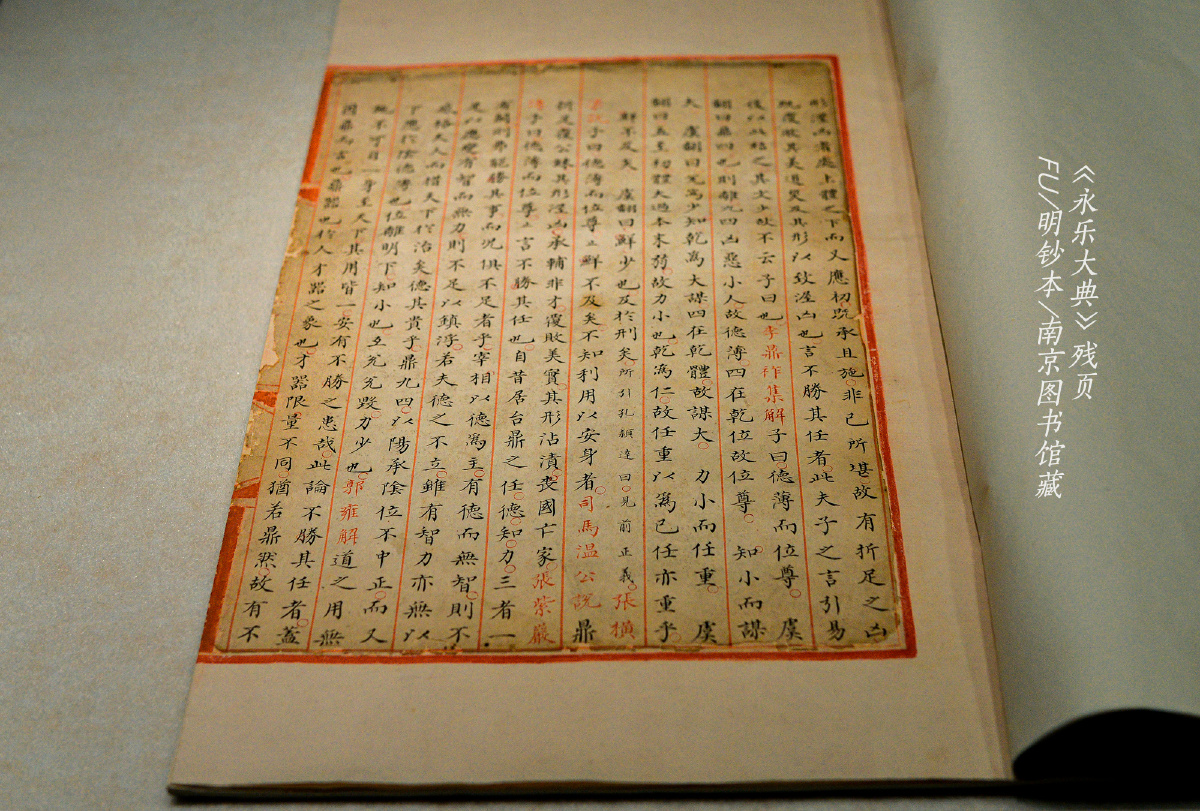 形渥凶者處上體之下而又應初既承且施非已所堪故有折足之凶
既覆敗其美道災及其形以致渥凶也言不勝其任者此夫子之言引易
後以故結之其文少故不云子曰也李鼎祚集解子曰德薄而位尊虞
翻曰鼎四也則離九四凶惡小人故德薄四在乾位故位尊 知小而謀
大 虞翻曰兌為少知乾為大謀四在乾體故謀大 力小而任重 虞
翻曰五至初體大過本末弱故力小也乾為仁故任重以為已任亦重乎
鮮不及矣 虞翻曰鮮少也及於刑矣所引孔穎達曰見前正義張橫
渠說子曰德薄而位尊止鮮不及矣不知利用以安身者司馬溫公說鼎
折足覆公餗其形渥凶承輔非才覆敗美實其形沾漬喪國亡家張紫巖
傳子曰德薄而位尊止言不勝其任也自昔居台鼎之任德知力三者一
有闕則弗能勝其事而況俱不足者乎宰相以德為主有德而無智則不
足以應變有智而無力則不足以鎮浮若夫德之不立雖有智力亦無以
感格天人而措天下於治矣德其貴乎鼎九四以陽承陰位不中正而又
下應於陰德薄也位離明下知小也互兌兌毀力少也郭雍解道之用無
施不可自一身至天下其用皆一安有不勝之患哉此論不勝其任者蓋
因鼎而言也鼎器也於人才器之象也才器限量不同猶若鼎然故有不
《永乐大典》残页
FU/明钞本/南京图书馆藏